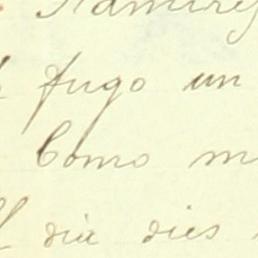 Ramirez
fugo un
Como m
el dia dies